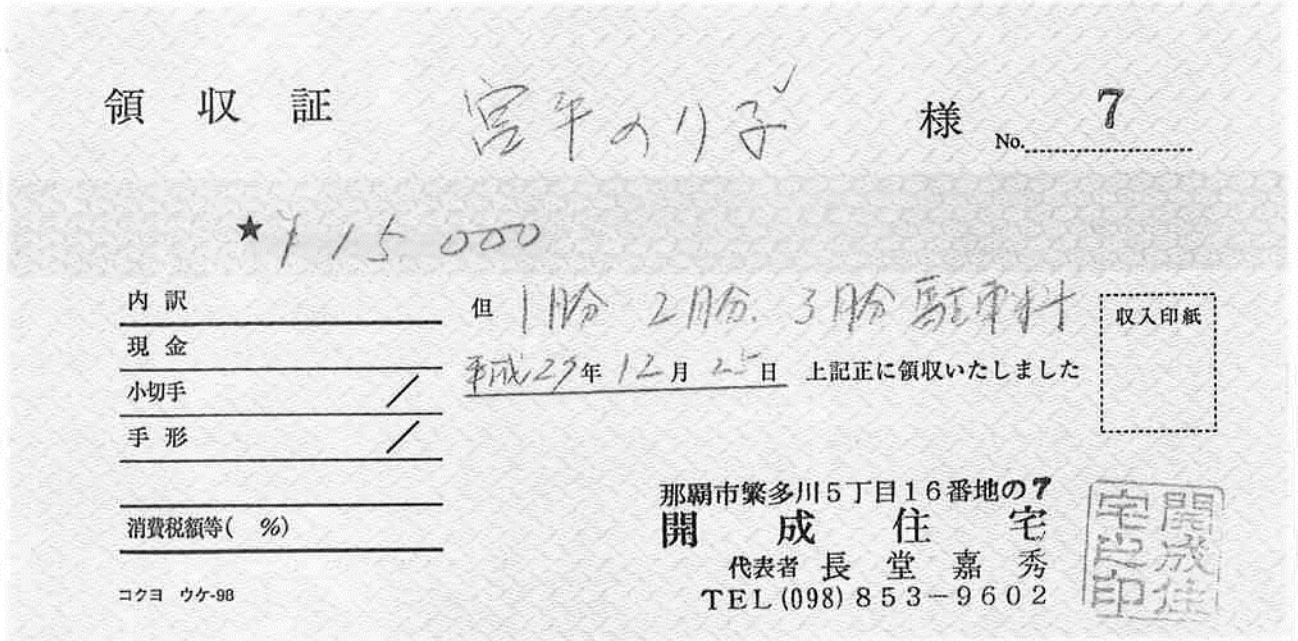 領収証 宮平のり子 様 No. 7
★ ¥15.000
内訳
現金
小切手 /
手形 /
消費税額等( %)
コクヨ ウケ-98
但 1月分 2月分. 3月分 駐車料
平成29年12月25日 上記正に領収いたしました
収入印紙
那覇市繁多川5丁目16番地の7
開成住宅
代表者 長堂嘉秀
TEL(098)853-9602
開成住宅之印